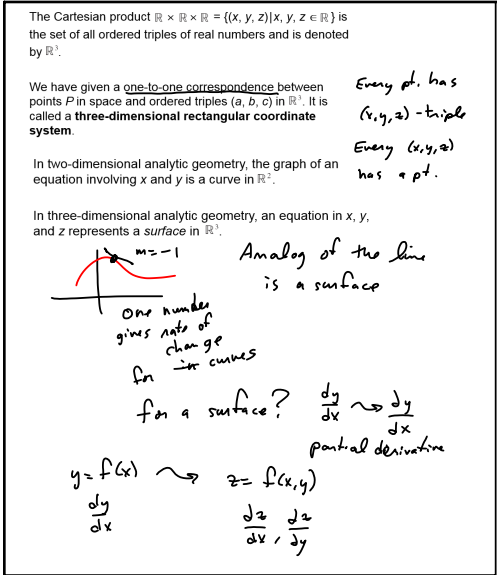 The Cartesian product ℝ × ℝ × ℝ = {(x, y, z)|x, y, z ∈ ℝ} is
the set of all ordered triples of real numbers and is denoted
by ℝ³.
We have given a one-to-one correspondence between
points P in space and ordered triples (a, b, c) in ℝ³. It is
called a three-dimensional rectangular coordinate
system.
Every pt. has
(x,y,z) - triple
Every (x,y,z)
has a pt.
In two-dimensional analytic geometry, the graph of an
equation involving x and y is a curve in ℝ².
In three-dimensional analytic geometry, an equation in x, y,
and z represents a surface in ℝ³.
m=-1
Analog of the line
is a surface
One number
gives rate of
change
for in curves
for a surface? dy/dx ⇝ ∂y/∂x
partial derivative
y=f(x) ⇝ z=f(x,y)
dy/dx ∂z/∂x, ∂z/∂y